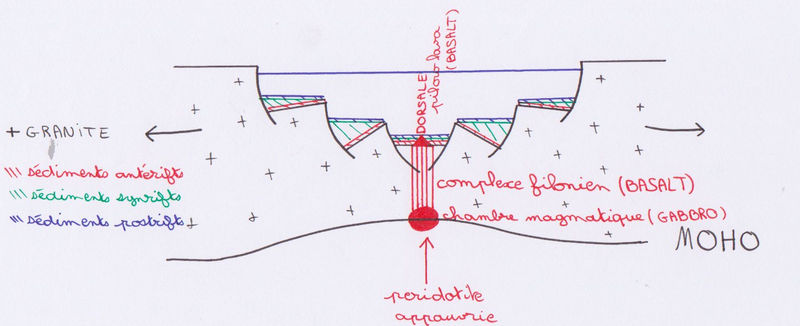 DORSALE
pilow lava
(BASALT)
+ GRANITE
sédiments antérifts
sédiments synrifts
sédiments postrifts
complexe filonien (BASALT)
chambre magmatique (GABBRO)
MOHO
peridotite
appauvrie